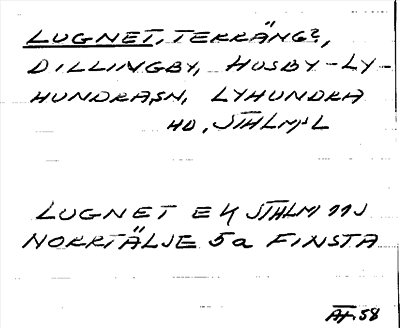 LUGNET, TERRÄNG?,
DILLINGBY, HUSBY-LY-
HUNDRA SN, LYHUNDRA
HD, STHLMS L
LUGNET EK STHLM 11J
NORRTÄLJE 5a FINSTA
AF.58